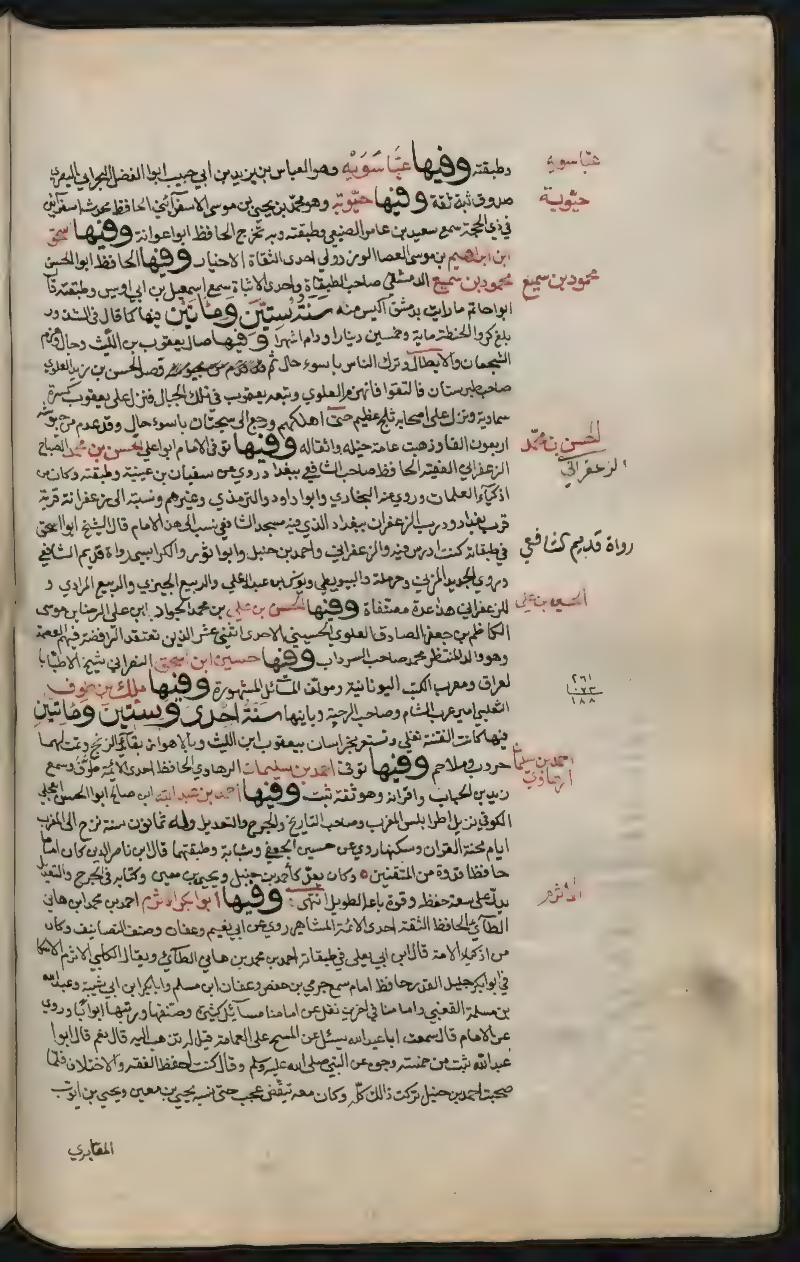 عباسويه
وطبقته وفيها عبّاسَوَيْهِ وهو العباس بن يزيد بن ابي حبيب ابوا الفضل البحراني البصري
حيوية
صدوق ثبة ثقة وفيها حيّويَة وهو محمد بن يحيى بن موسى الاسفرآئني الحافظ محدث اسفرآئن
في ذي الحجة سمع سعيد بن عامر الضبعي وطبقته وبه تخرج الحافظ ابو اعوانة وفيها
ابن ابراهيم بن موسى العصا الوزدولي احدى الثقاة الاخيار وفيها الحافظ ابو الحسن
محمود بن سميع
محمود بن سميع الدمشقي صاحب الطبقاة واحدى الاثباة سمع اسمعيل بن ابي اويس وطبقته قا
ابوا حاتم ما رايت بدمشق اكيس منه سَنَةُ سِتِّيَن وَمَائَتيْن فيها كما قال في الشذور
بلغ كروا الحنطة مايه وخمسين دينارا ودام اشهرا وفيها صال يعقوب بن الليث وجال وهزم
الشجعان والابطال وترك الناس باسوء حال ثم قصد الحسن بن زيد العلوي
صاحب طبرستان فالتقوا فانهزم العلوي وتبعه يعقوب في تلك الجبال فنزل على يعقوب كسرة
سماوية ونزل على اصحابه ثلج عظيم حتى اهلكهم ورجع الى سجستان باسوء حال وقد عدم من جيوشه
الحسن بن محمّد
اربعون الفا وذهبت عامة خيله واثقاله وفيها توفي الامام ابو اعلي الحسن بن محمد الصباح
الزعفراني
الزعفراني الفقيه الحافظ صاحب الشافعي ببغداد روى عن سفيان بن عيينة وطبقته وكان من
اذكيآء العلمآء وروى عنه البخاري وابوا داود والترمذي وغيرهم ونسبته الى زعفرانة قرية
قرب بغداد ودرب الزعفران ببغداد الذي فيه مسجد الشافعي نسب الى هذا الامام قال الشيخ ابوا اسحق
رواة قديم كشافعي
في طبقاته كنت ادرس فيه والزعفراني واحمد بن حنبل وابوا ثور والكرابيسي رواة قديم الشافعي
وروى الجديد المزني وحرملة والبويطي ويونس بن عبد الاعلى والربيع الجيزي والربيع المرادي و
الحسن بن علي
للزعفراني هذا عدة مصنفاة وفيها الحسن بن علي بن محمد الجواد ابن علي الرضا بن موسى
الكاظم بن جعفر الصادق العلوي الحسيني الاحدى اثني عشر الذين تعتقد الرافضة فيهم العصمة
وهو والد المنتظر محمد صاحب السرداب وفيها حسين ابن اسحق النصراني شيخ الاطبا با
٢٦١
١٠٧٣
١٨٨
لعراق ومعرب الكتب اليونانية ومولف المسائل المشهورة وفيها ملك بن طوق
الثعلبي امير عرب الشام وصاحب الرحبة وبانيها سنة احدى وستين ومائتين
فيها كانت الفتنة تغلي وتستعر بخراسان بيعقوب ابن الليث وبالاهواز بقائد الزنج وتمت لهما
احمد بن سليمان
الرهاوي
حروب وملاحم وفيها توفي احمد بن سليمان الرهاوي الحافظ احدى الائمة طوف وسمع
زيد بن الحباب واقرانه وهو ثقة ثبت وفيها احمد بن عبد الله ابن صالح ابوا الحسن العجلي
الكوفي نزيل اطرابلس المغرب وصاحب التاريخ والجرح والتعديل وله ثمانون سنة نزح الى المغرب
ايام محنة القران وسكنها روى عن حسين الجعفي وشبابة وطبقتهما قال ابن ناصر الدين كان اماما
حافظا قدوة من المتقنين وكان يعد كاحمد بن حنبل ويحيى بن معين وكتابه في الجرح والتعديل
الاثرم
يدل على سعة حفظه وقوة باعه الطويل انتهى وفيها ابو ابكر الاثرم احمد بن محمد ابن هاني
الطآئي الحافظ الثقة احدى الائمة المشاهير روى عن ابي نعيم وعفان وصنف التصانيف وكان
من اذكياء الامة قال ابن ابي يعلى في طبقاته احمد بن محمد بن هاني الطآئي ويقال الكلبي الاثرم الاسكا
في ابوا بكر جليل القدر حافظ امام سمع حرمي بن حفص وعفان ابن مسلم وابا بكر ابن ابي شيبة وعبد الله
بن مسلمة القعنبي واما منا في اخرين نقل عن امامنا مسآئل كثيرة وصنفها ورتبها ابوابا وروى
عن الامام قال سمعت ابا عبد الله يسئل عن المسح على العمامة قيل له تذهب اليه قال نعم قال ابوا
عبد الله ثبت من خمسة وجوه عن النبي صلى الله عليه وسلم وقال كنت احفظ الفقه والاختلاف فلما
صحبت احمد بن حنبل تركت ذالك كله وكان معه تيقض عجب حتى نسبه يحيى بن معين ويحيى بن ايوب
المقابري